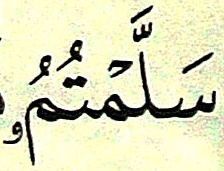 سَلَّمْتُمُۥ